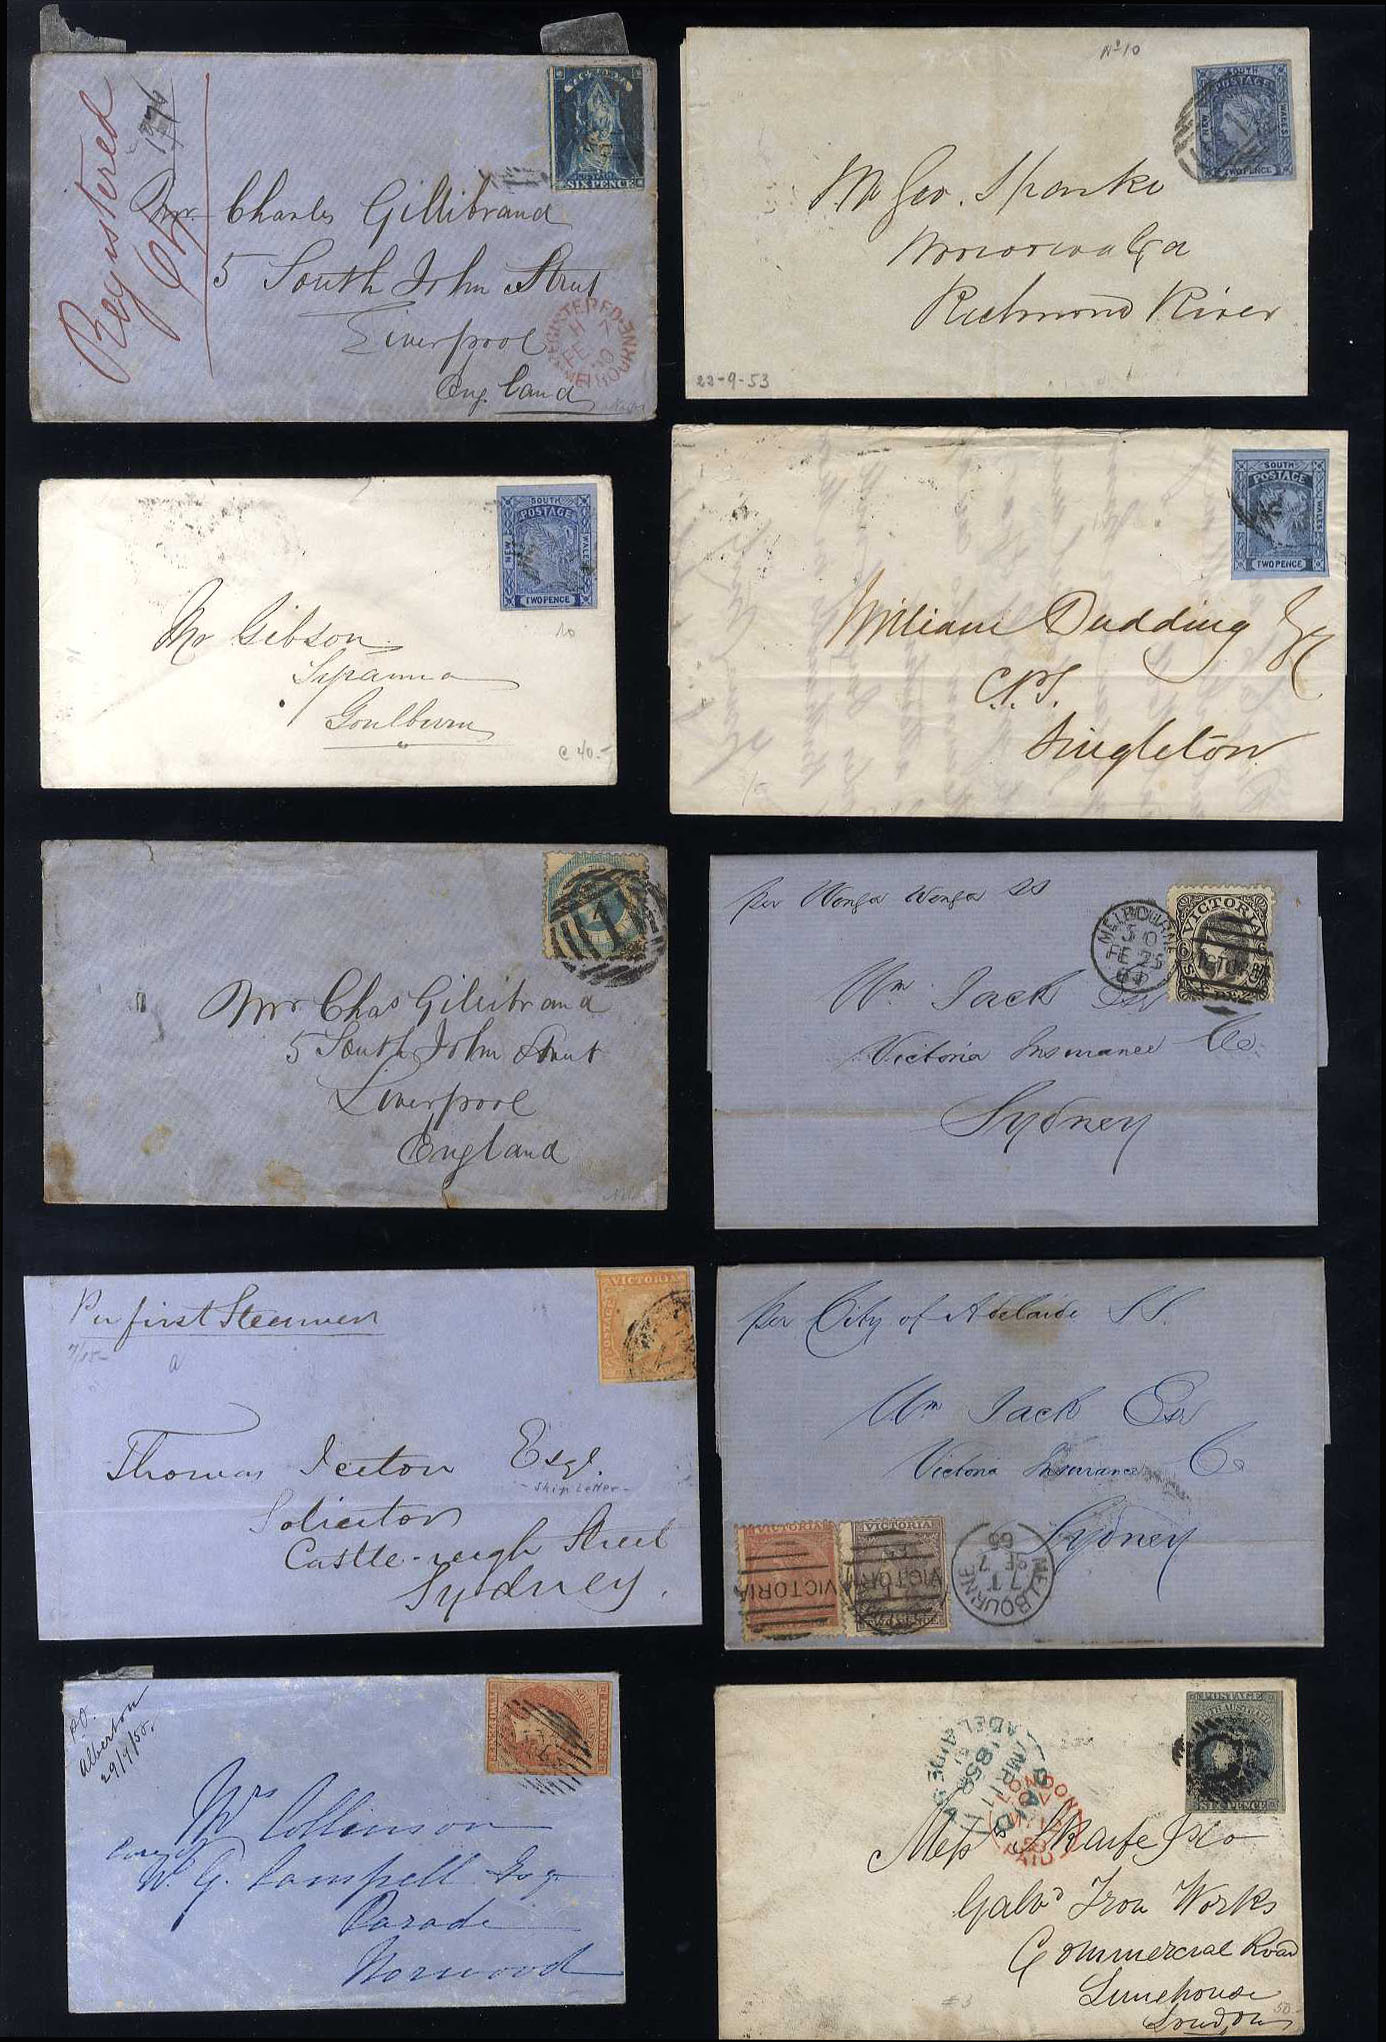 Registered
1376
Mr. Charles Gillibrand
5 South John Street
Liverpool
England
VICTORIA
POSTAGE
SIX PENCE
REGISTERED MELBOURNE
H
FE 7
60
No 10
Mr Geo. Sparke
Richmond River
22-9-53
SOUTH
POSTAGE
NEW
WALES
TWO PENCE
Mr Gibson
Goulburn
c 40.-
SOUTH
POSTAGE
NEW
WALES
TWO PENCE
William Dudding Esq
C.P.S.
Singleton
SOUTH
POSTAGE
WALES
TWO PENCE
Mr Chas Gillibrand
5 South John Street
Liverpool
England
1
per Wonga Wonga SS
Wm Jack Esq
Victoria Insurance Co.
Sydney
MELBOURNE
5 O
FE 25
VICTORIA
VICTORIA
Per first Steamer
Thomas Iceton Esqr.
- Ship Letter -
Solicitor
Castle-reagh Street
Sydney.
VICTORIA
POSTAGE
per City of Adelaide SS.
Wm Jack Esq
Victoria Insurance Co
Sydney
VICTORIA
VICTORIA
VICTORIA
VICTORIA
TWO PENCE
MELBOURNE
7 T
SE 7
65
P.O.
Alberton
29/1/58.
Mr Collinson
Care of
W. G. Campbell Esq
Parade
Norwood
Messrs Skaife & Co
Galvd Iron Works
Commercial Road
Limehouse
London
POSTAGE
SIX PENCE
ADELAIDE
MR 11
1858
PAID
LONDON
58
PAID
#3
50-